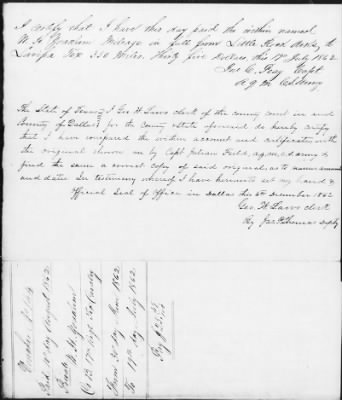 I certify that I have this day paid the within named
W. H. Gorsham Mileage in full from Little Rock Arks, to
Lavapa Tex 350 Miles. Thirty five Dollars, this 17th July 1862
Jno. C. Fray Capt
A Q M C S Army
The State of Texas I Geo H Laws clerk of the county court in and
County of Dallas for the county State aforesaid do hereby certify
that I have compared the within account and certificates with
the original shown me by Capt Julian Feild, a.q.m.c.s.army &
find the same a correct copy of said original, as to names amounts
and dates In testimony whereof I have hereunto set my hand &
Official Seal of Office in Dallas this 6th December 1862
Geo. H. Laws clerk
By Jas P. Thomas deputy
Voucher
Paid 18th day August 1862
Private W. H. Gorsham
Co B. 17th Regt Tex Cavalry
From 30 day Mar. 1862
To 17th day July 1862
Pay $